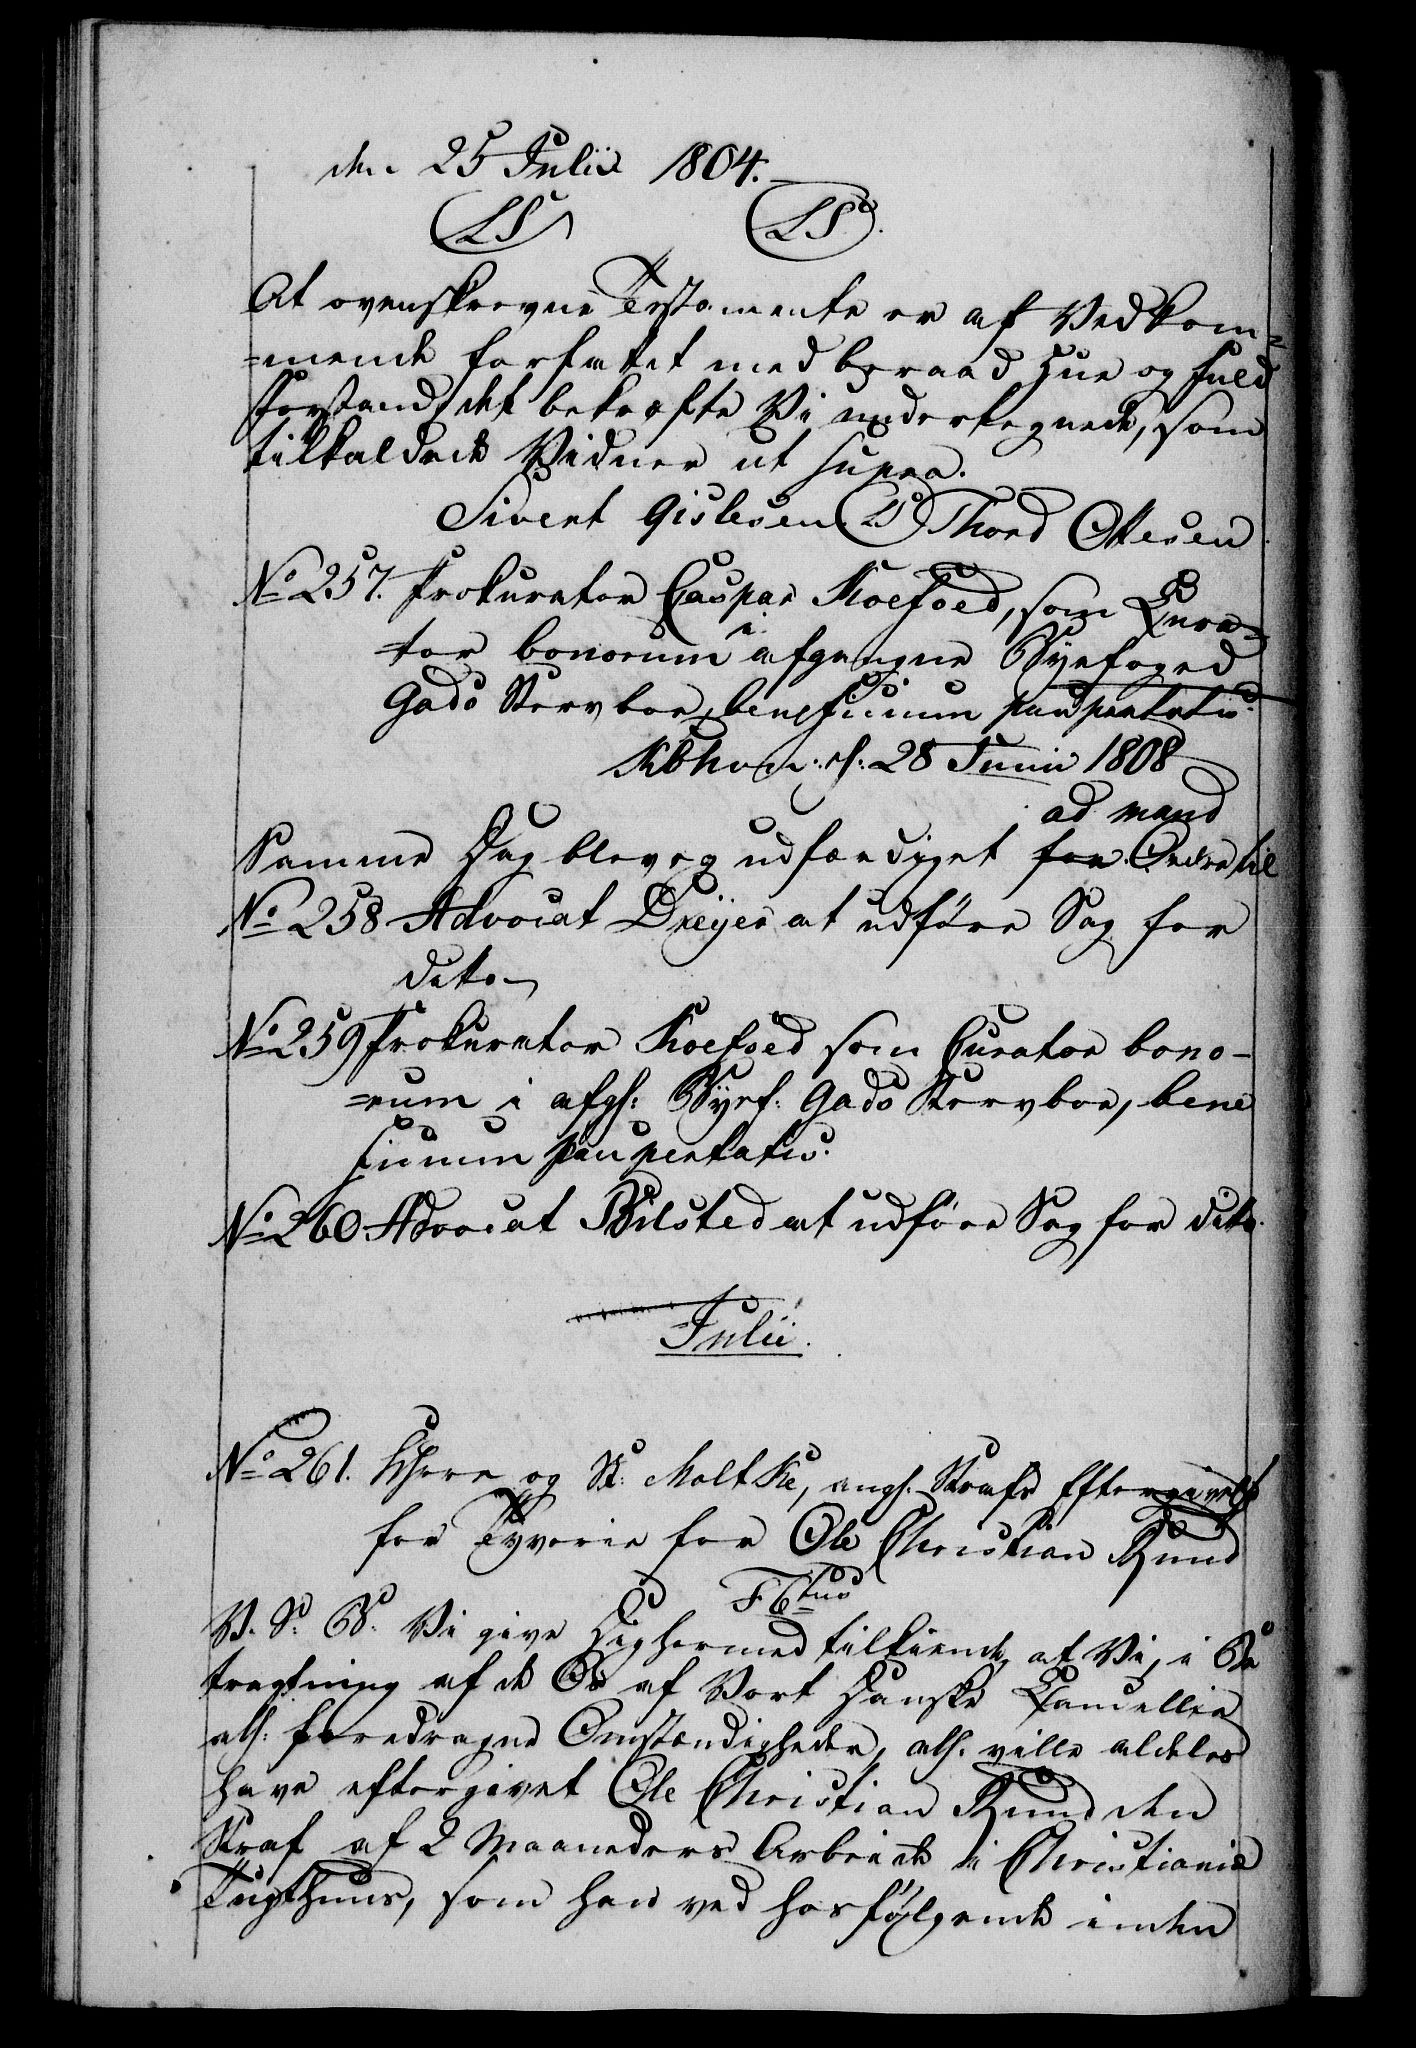 den 25 Julii 1804.
LS LS.
At ovenskrevne Testamente er af Vedkom=
=mende forfattet med beraad Hue og fuld
Forstand, det bekræfte Vi undertegnede, som
tilkaldede Vidner ut supra.
Sivert Gislesen LS Thord Ottesen.
No 257. Prokurator Caspar Koefoed, som Cura=
tor bonorum i afgangne Byefoged
Gads Stervboe, beneficium paupertatis.
Kbhavn: d: 28 Junii 1808
ad mand
Samme Dag blev og udfærdiget for Ordre til
No 258 Advocat Dreijer at udføre Sag for
dito
No 259 Prokurator Koefoed som Curator bono-
=rum i afg: Byef: Gads Stervboe, bene
ficium paupertatis.
No 260. Advocat Bilsted at udføre Sag for dito.
Julii.
No 261. Hrr og St: Moltke, ang: Straffs Eftergivelse
for Tyverie for Ole Christian Bund
F 6tus
V. S. G. Vi give Dig hermed tilkiende, at Vi, i Be
tragtning af de Os af Vort Danske Cancellie
all: foredragne Omstændigheder, all: ville aldeles
have eftergivet Ole Christian Bund den
Straf af 2 Maaneders Arbeide i Christianie
Tugthuus, som han ved hosfølgende inden